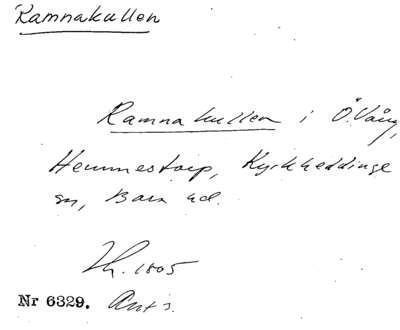 Ramnakullen
Ramnakullen i Ö. Vång,
Hemmestorp, Kyrkheddinge
sn, Bara hd.
1805
Nr 6329. Ant s.